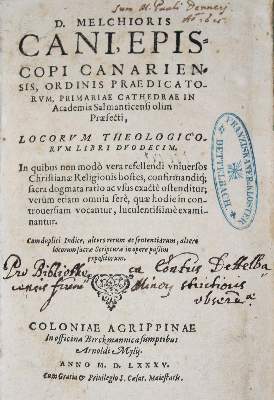 Sum
D. MELCHIORIS
CANI, EPIS-
COPI CANARIEN-
SIS, ORDINIS PRAEDICATO-
RVM, PRIMARIAE CATHEDRAE IN
Academia Salmanticensi olim
Præfecti,
LOCORVM THEOLOGICO-
RVM LIBRI DVODECIM.
In quibus non modò vera refellendi vniuersos
Christianæ Religionis hostes, confirmandiq́;
sacra dogmata ratio ac vsus exactè ostenditur;
verùm etiam omnia ferè, quæ hodie in con-
trouersiam vocantur, luculentissimè exami-
nantur.
Cum duplici Indice, altero rerum ac sententiarum, altero
locorum sacræ Scripturæ in opere passim
expositorum.
Pro
Minor
COLONIAE AGRIPPINAE
In officina Birckmannica sumptibus
Arnoldi Mylij.
ANNO M. D. LXXXV.
Cum Gratia & Priuilegio S. Cæsar. Maiestatis.
FRANZISKANERKLOSTER
DETTELBACH